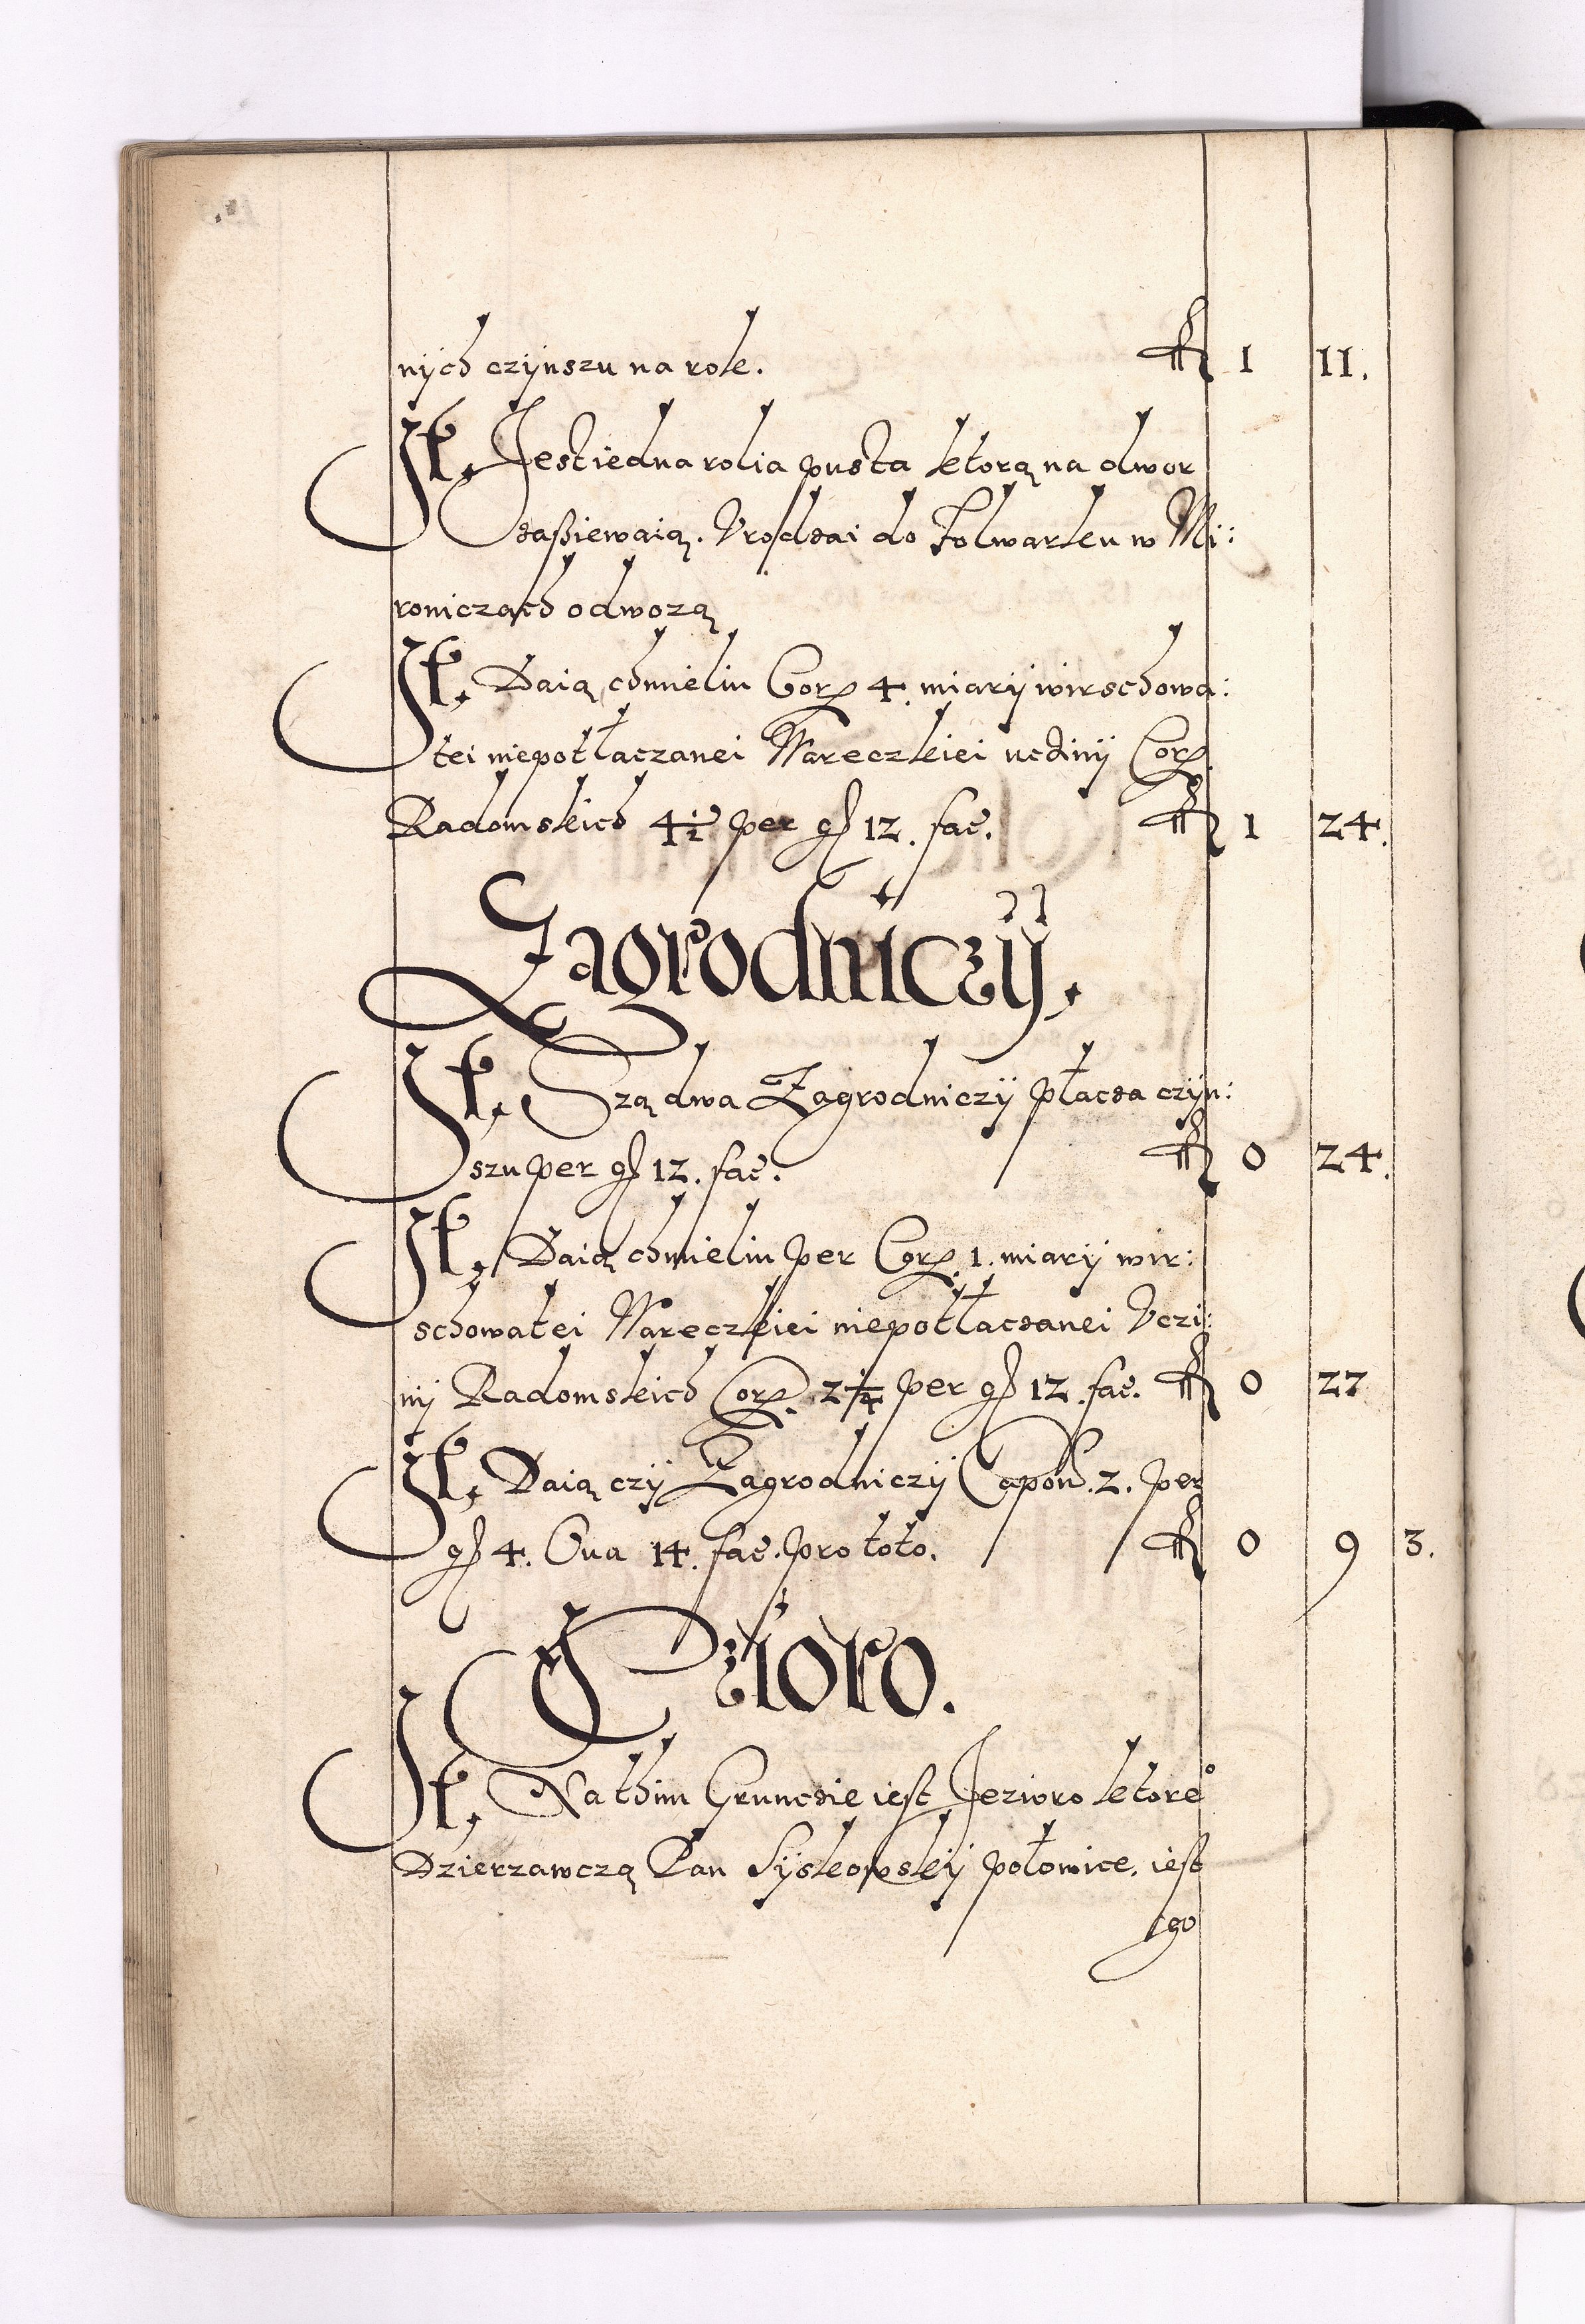 nÿch czÿnszu na role. ff 1 11.
It. Jest iedna rolia pusta ktorą na dwor
zasziewaią. Vrodzai do Folwarku w Mi:
roniczach odwozą
It. Daią chmieliu Corz 4. miarÿ wirschowa:
tei niepotłaczanei Wareczkiei uchinÿ Corz.
Radomskich 4½ per gſ 12. fac. ff 1 24.
Zagrodniczÿ.
It. Szą dwa Zagrodniczÿ płacza czÿn:
szu per gſ 12. fac. ff 0 24.
It. Daią chmieliu per Corz. 1. miarÿ wir:
schowatei Wareczkiei niepotłaczanei Vczi:
nÿ Radomskich Corz. 2¼ per gſ 12. fac. ff 0 27
It. Daią czÿ Zagrodniczÿ Capon. 2. per
gſ 4. Oua 14. fac. pro toto. ff 0 9 3.
Jezioro.
It. Na thim Grunczie iest Jezioro ktore°
Dzierzawczą Pan Sÿskowskÿ połowice, iest
ego